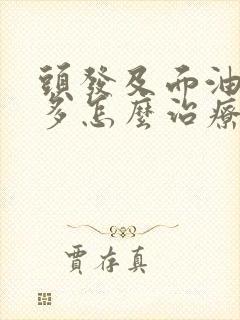 頭發及而油
多怎麼治療
賈存真